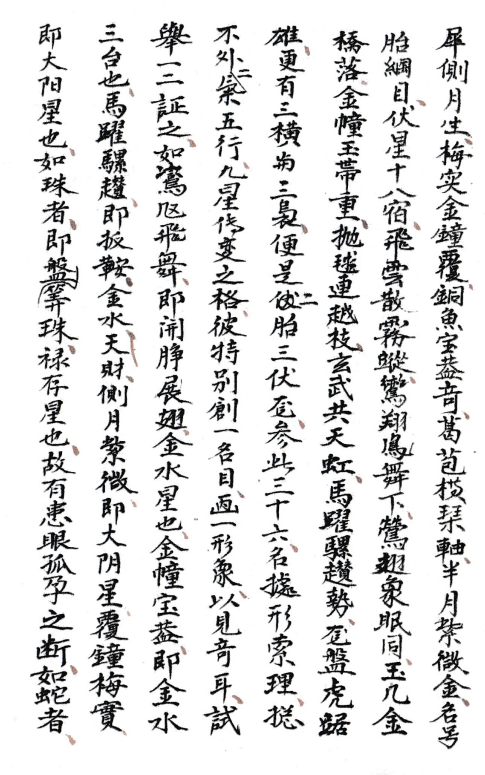 犀側月生梅实金鐘覆銅魚宝葢奇葛苞横琹軸半月紫微金名号
胎綱目伏星十八宿飛雲散霧蹤鸞翔鳯舞下鶯翅象眠同玉几金
橋落金幢玉带重抛毬連越枝玄武共天虹馬躍騾趲勢厐盤虎踞
雄更有三横为三裊便是伏胎三伏厐参此三十六名據形索理捴
不外二氣五行九星傳变之格彼特别創一名目画一形象以見奇耳試
舉一二証之如鸞凤飛舞即開脖展翅金水星也金幢宝葢即金水
三台也馬躍騾趲即扳鞍金水天財側月紫微即大阴星覆鐘梅實
即大阳星也如珠者即盤筭珠禄存星也故有患眼孤孕之断如蛇者